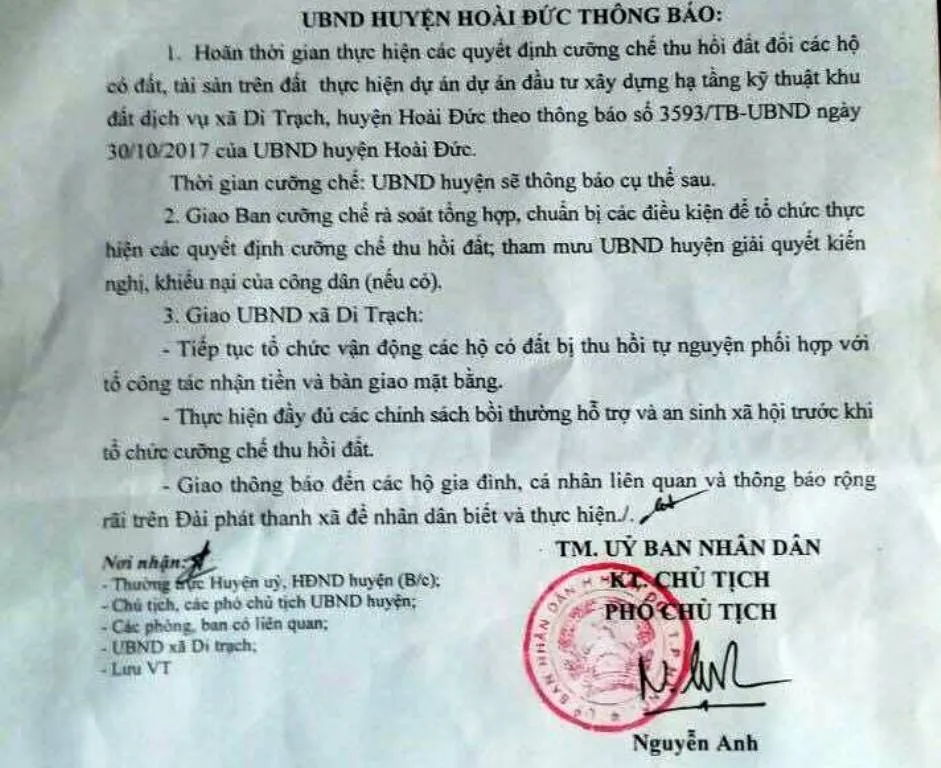 UBND HUYỆN HOÀI ĐỨC THÔNG BÁO:
1. Hoãn thời gian thực hiện các quyết định cưỡng chế thu hồi đất đối các hộ
có đất, tài sản trên đất thực hiện dự án dự án đầu tư xây dựng hạ tầng kỹ thuật khu
đất dịch vụ xã Di Trạch, huyện Hoài Đức theo thông báo số 3593/TB-UBND ngày
30/10/2017 của UBND huyện Hoài Đức.
Thời gian cưỡng chế: UBND huyện sẽ thông báo cụ thể sau.
2. Giao Ban cưỡng chế rà soát tổng hợp, chuẩn bị các điều kiện để tổ chức thực
hiện các quyết định cưỡng chế thu hồi đất; tham mưu UBND huyện giải quyết kiến
nghị, khiếu nại của công dân (nếu có).
3. Giao UBND xã Di Trạch:
- Tiếp tục tổ chức vận động các hộ có đất bị thu hồi tự nguyện phối hợp với
tổ công tác nhận tiền và bàn giao mặt bằng.
- Thực hiện đầy đủ các chính sách bồi thường hỗ trợ và an sinh xã hội trước khi
tổ chức cưỡng chế thu hồi đất.
- Giao thông báo đến các hộ gia đình, cá nhân liên quan và thông báo rộng
rãi trên Đài phát thanh xã để nhân dân biết và thực hiện./.
Nơi nhận:
- Thường trực Huyện uỷ, HĐND huyện (B/c);
- Chủ tịch, các phó chủ tịch UBND huyện;
- Các phòng, ban có liên quan;
- UBND xã Di trạch;
- Lưu VT
TM. UỶ BAN NHÂN DÂN
KT. CHỦ TỊCH
PHÓ CHỦ TỊCH
BAN NHÂN DÂN
Nguyễn Anh